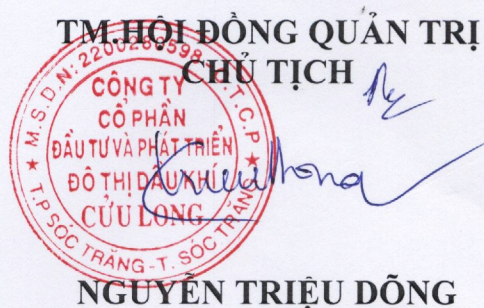 TM.HỘI ĐỒNG QUẢN TRỊ
CHỦ TỊCH
M.S.D.N: 2200280598 - C.T.C.P
CÔNG TY
CỔ PHẦN
ĐẦU TƯ VÀ PHÁT TRIỂN
ĐÔ THỊ DẦU KHÍ
CỬU LONG
T.P SÓC TRĂNG - T. SÓC TRĂNG
NGUYỄN TRIỆU DÕNG